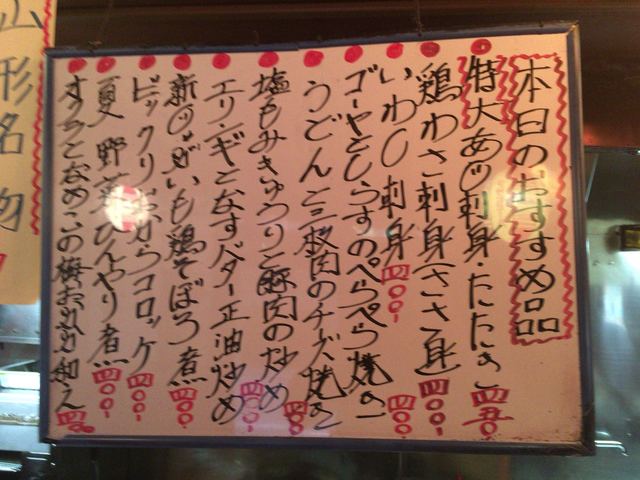 本日のおすすめ品
特大あじ刺身・たたき 四五〇
鶏わさ刺身(ささ身) 四〇〇
いわし刺身 四〇〇
ゴーヤとしらすのぺらぺら焼き 四〇〇
うどんと三枚肉のチーズ焼き 四〇〇
塩もみきゅうりと豚肉の炒め 四〇〇
エリンギとなすバター正油炒め
新のじゃがいも鶏そぼろ煮 四〇〇
ビックリ コロッケ 四〇〇
夏野菜ひんやり煮 四〇〇
オクラとなめこの梅おろし和え
山形名物